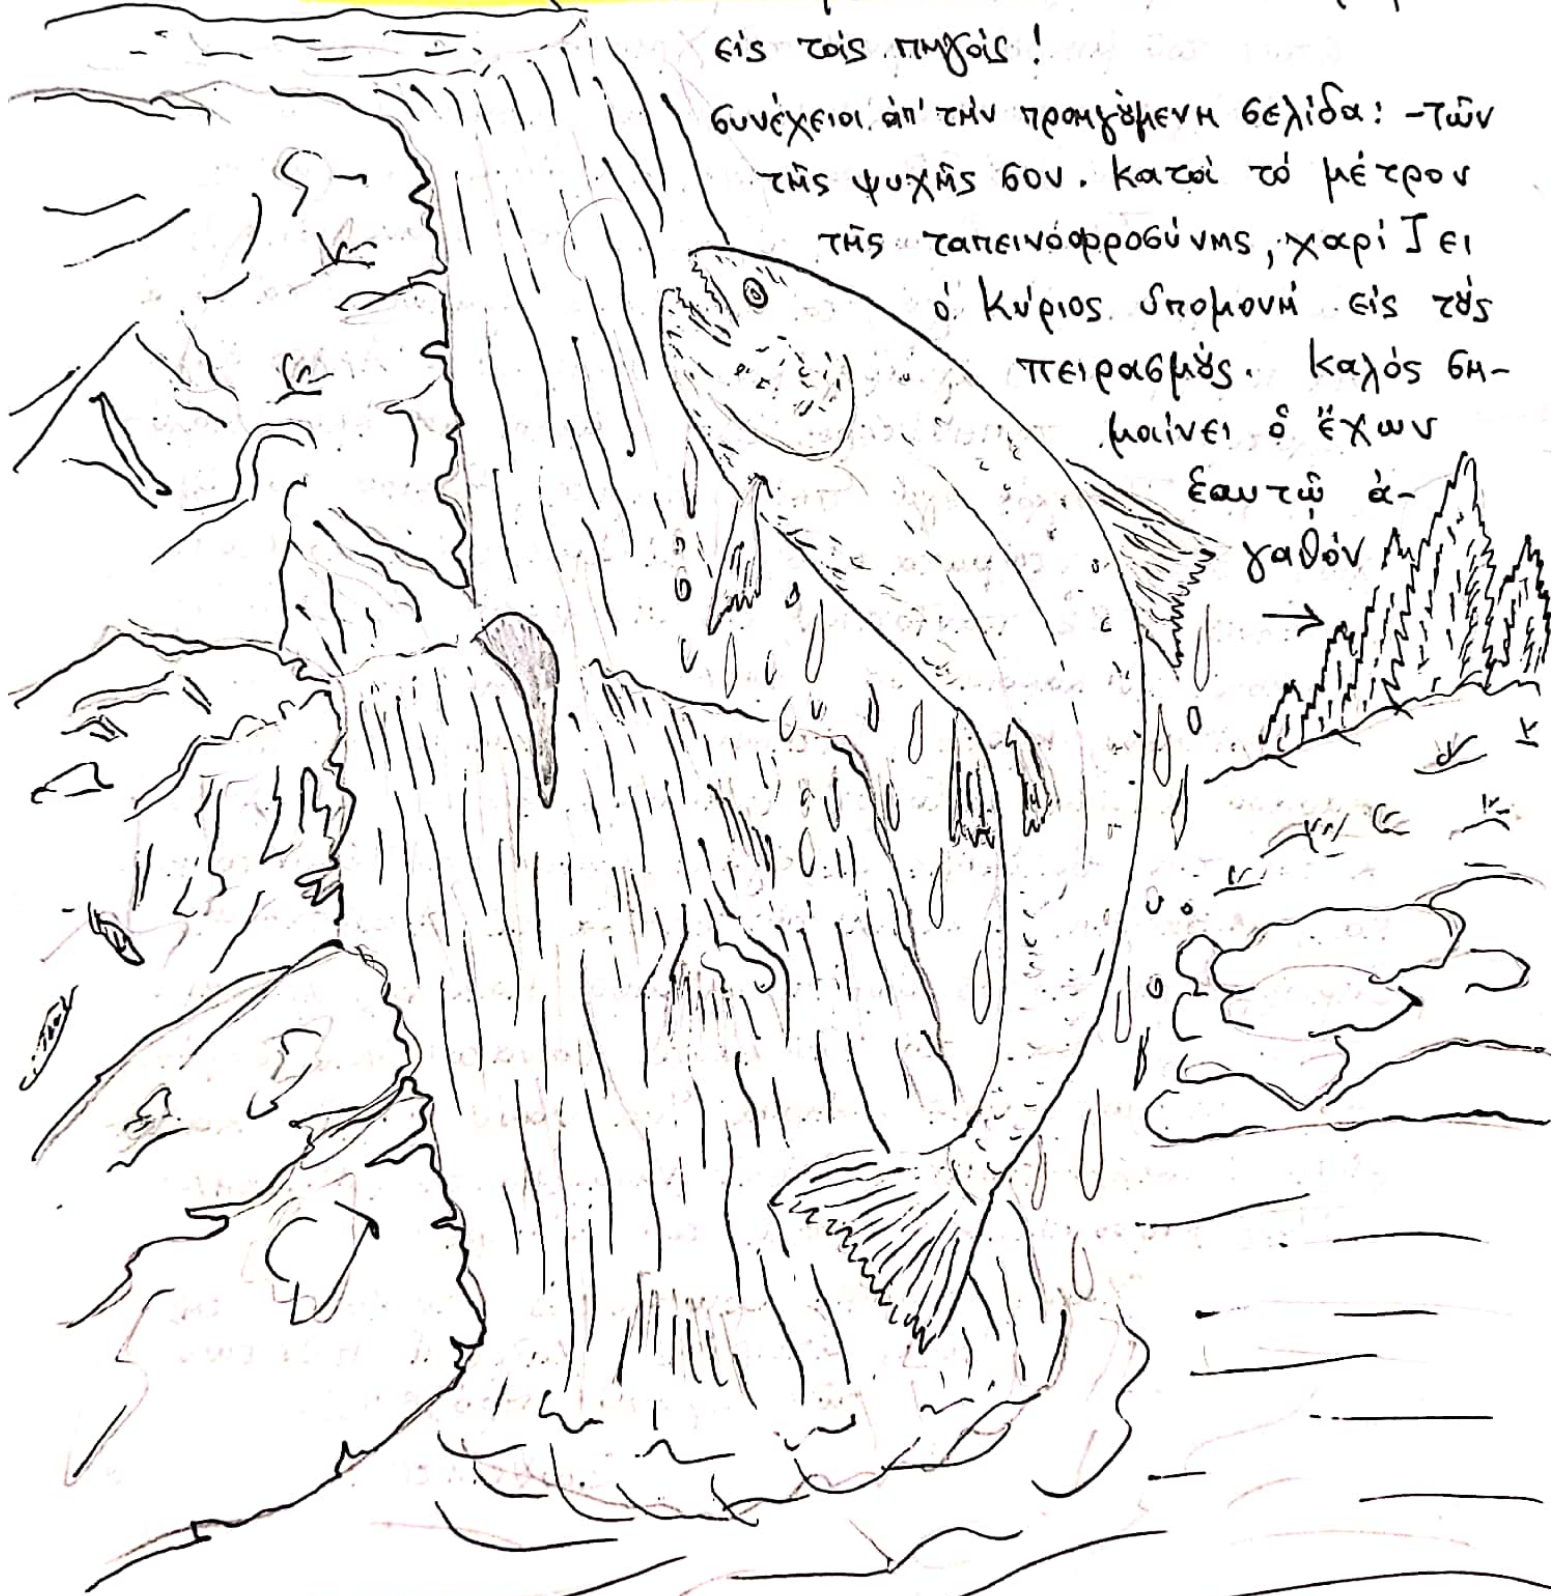 εἰς τὰς πηγὰς!
συνέχεια ἀπ' τὴν προηγȣ́μενη σελίδα: -τῶν
τῆς ψυχῆς σου. κατὰ τὸ μέτρον
τῆς ταπεινοφροσύνης, χαρίζει
ὁ Κύριος ὑπομονή εἰς τȣ̀ς
πειρασμȣ́ς. καλός ση-
μαίνει ὁ ἔχων
ἑαυτῷ ἀ-
γαθόν